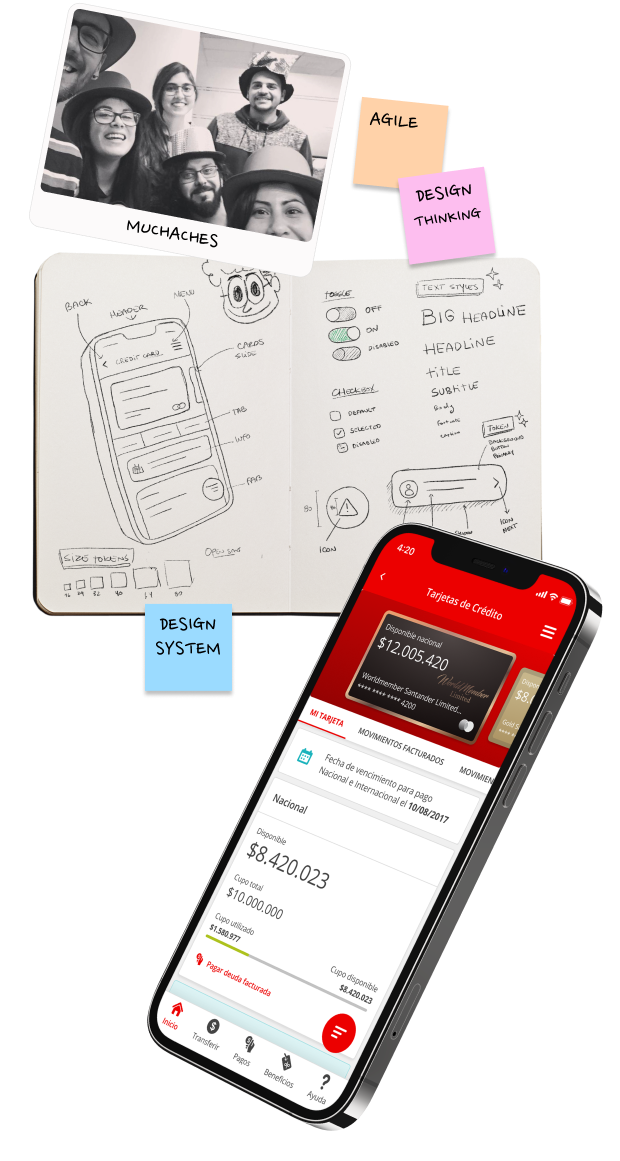 AGILE
DESIGN
THINKING
MUCHACHES
BACK
HEADER
MENU
CREDIT CARD
CARDS
SLIDE
TAB
INFO
FAB
SIZE TOKENS
OPEN SANS
16 24 32 40 64 80
TOGGLE
OFF
ON
DISABLED
CHECKBOX
DEFAULT
SELECTED
DISABLED
80
ICON
TEXT STYLES
BIG HEADLINE
HEADLINE
TITLE
SUBTITLE
Body
TOKEN
BACKGROUND
BUTTON
PRIMARY
ICON
NEXT
DESIGN
SYSTEM
4:20
Tarjetas de Crédito
Disponible nacional
$12.005.420
WorldMember
Limited
Worldmember Santander Limited...
**** **** **** 4200
$8.
Gold S
MI TARJETA
MOVIMIENTOS FACTURADOS
MOVIMIEN
Fecha de vencimiento para pago
Nacional e Internacional el 10/08/2017
Nacional
Disponible
$8.420.023
Cupo total
$10.000.000
Cupo utilizado
$1.580.977
Cupo disponible
$8.420.023
Pagar deuda facturada
Inicio
Transferir
Pagos
Beneficios
Ayuda